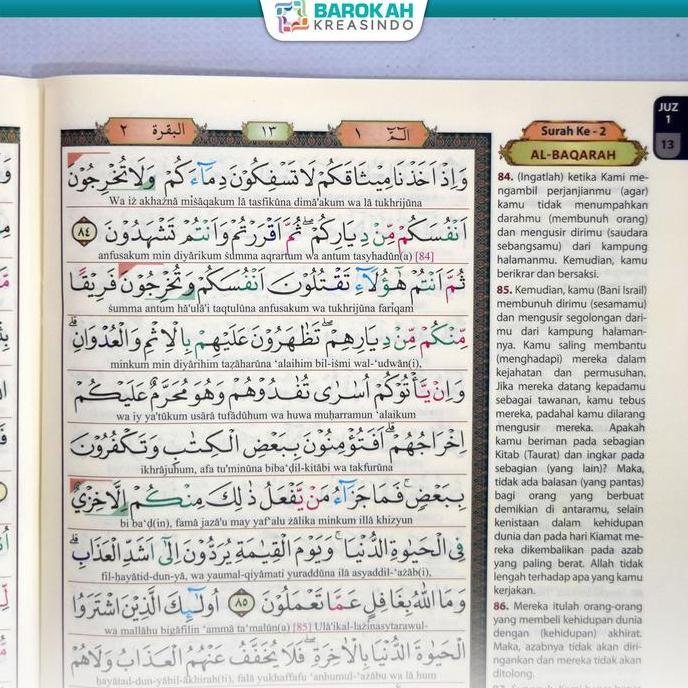 BAROKAH
KREASINDO
البقرة ٢
١٣
الۤمّۤ ١
Surah Ke - 2
AL-BAQARAH
JUZ
1
13
وَاِذْ اَخَذْنَا مِيْثَاقَكُمْ لَا تَسْفِكُوْنَ دِمَاۤءَكُمْ وَلَا تُخْرِجُوْنَ
Wa iż akhażnā mīṡāqakum lā tasfikūna dimā'akum wa lā tukhrijūna
اَنْفُسَكُمْ مِّنْ دِيَارِكُمْۖ ثُمَّ اَقْرَرْتُمْ وَاَنْتُمْ تَشْهَدُوْنَ ٨٤
anfusakum min diyārikum ṡumma aqrartum wa antum tasyhadūn(a) [84]
ثُمَّ اَنْتُمْ هٰٓؤُلَاۤءِ تَقْتُلُوْنَ اَنْفُسَكُمْ وَتُخْرِجُوْنَ فَرِيْقًا
ṡumma antum hā'ulā'i taqtulūna anfusakum wa tukhrijūna farīqam
مِّنْكُمْ مِّنْ دِيَارِهِمْۖ تَظٰهَرُوْنَ عَلَيْهِمْ بِالْاِثْمِ وَالْعُدْوَانِۗ
minkum min diyārihim taẓāharūna 'alaihim bil-iṡmi wal-'udwān(i),
وَاِنْ يَّأْتُوْكُمْ اُسٰرٰى تُفٰدُوْهُمْ وَهُوَ مُحَرَّمٌ عَلَيْكُمْ
wa iy ya'tūkum usārā tufādūhum wa huwa muḥarramun 'alaikum
اِخْرَاجُهُمْۗ اَفَتُؤْمِنُوْنَ بِبَعْضِ الْكِتٰبِ وَتَكْفُرُوْنَ
ikhrājuhum, afa tu'minūna biba'ḍil-kitābi wa takfurūna
بِبَعْضٍۚ فَمَا جَزَاۤءُ مَنْ يَّفْعَلُ ذٰلِكَ مِنْكُمْ اِلَّا خِزْيٌ
bi ba'ḍ(in), famā jazā'u may yaf'alu żālika minkum illā khizyun
فِى الْحَيٰوةِ الدُّنْيَاۚ وَيَوْمَ الْقِيٰمَةِ يُرَدُّوْنَ اِلٰٓى اَشَدِّ الْعَذَابِۗ
fil-ḥayātid-dun-yā, wa yaumal-qiyāmati yuraddūna ilā asyaddil-'ażāb(i),
وَمَا اللّٰهُ بِغَافِلٍ عَمَّا تَعْمَلُوْنَ ٨٥ اُولٰۤىِٕكَ الَّذِيْنَ اشْتَرَوُا
wa mallāhu bigāfilin 'ammā ta'malūn(a) [85] Ulā'ikal-lażīnasytarawul-
الْحَيٰوةَ الدُّنْيَا بِالْاٰخِرَةِۖ فَلَا يُخَفَّفُ عَنْهُمُ الْعَذَابُ وَلَا هُمْ
ḥayātad-dun-yā bil-ākhirah(ti), falā yukhaffafu 'anhumul-'ażābu wa lā hum
84. (Ingatlah) ketika Kami me-
ngambil perjanjianmu (agar)
kamu tidak menumpahkan
darahmu (membunuh orang)
dan mengusir dirimu (saudara
sebangsamu) dari kampung
halamanmu. Kemudian, kamu
berikrar dan bersaksi.
85. Kemudian, kamu (Bani Israil)
membunuh dirimu (sesamamu)
dan mengusir segolongan dari-
mu dari kampung halaman-
nya. Kamu saling membantu
(menghadapi) mereka dalam
kejahatan dan permusuhan.
Jika mereka datang kepadamu
sebagai tawanan, kamu tebus
mereka, padahal kamu dilarang
mengusir mereka. Apakah
kamu beriman pada sebagian
Kitab (Taurat) dan ingkar pada
sebagian (yang lain)? Maka,
tidak ada balasan (yang pantas)
bagi orang yang berbuat
demikian di antaramu, selain
kenistaan dalam kehidupan
dunia dan pada hari Kiamat me-
reka dikembalikan pada azab
yang paling berat. Allah tidak
lengah terhadap apa yang kamu
kerjakan.
86. Mereka itulah orang-orang
yang membeli kehidupan dunia
dengan (kehidupan) akhirat.
Maka, azabnya tidak akan diri-
ngankan dan mereka tidak akan
ditolong.